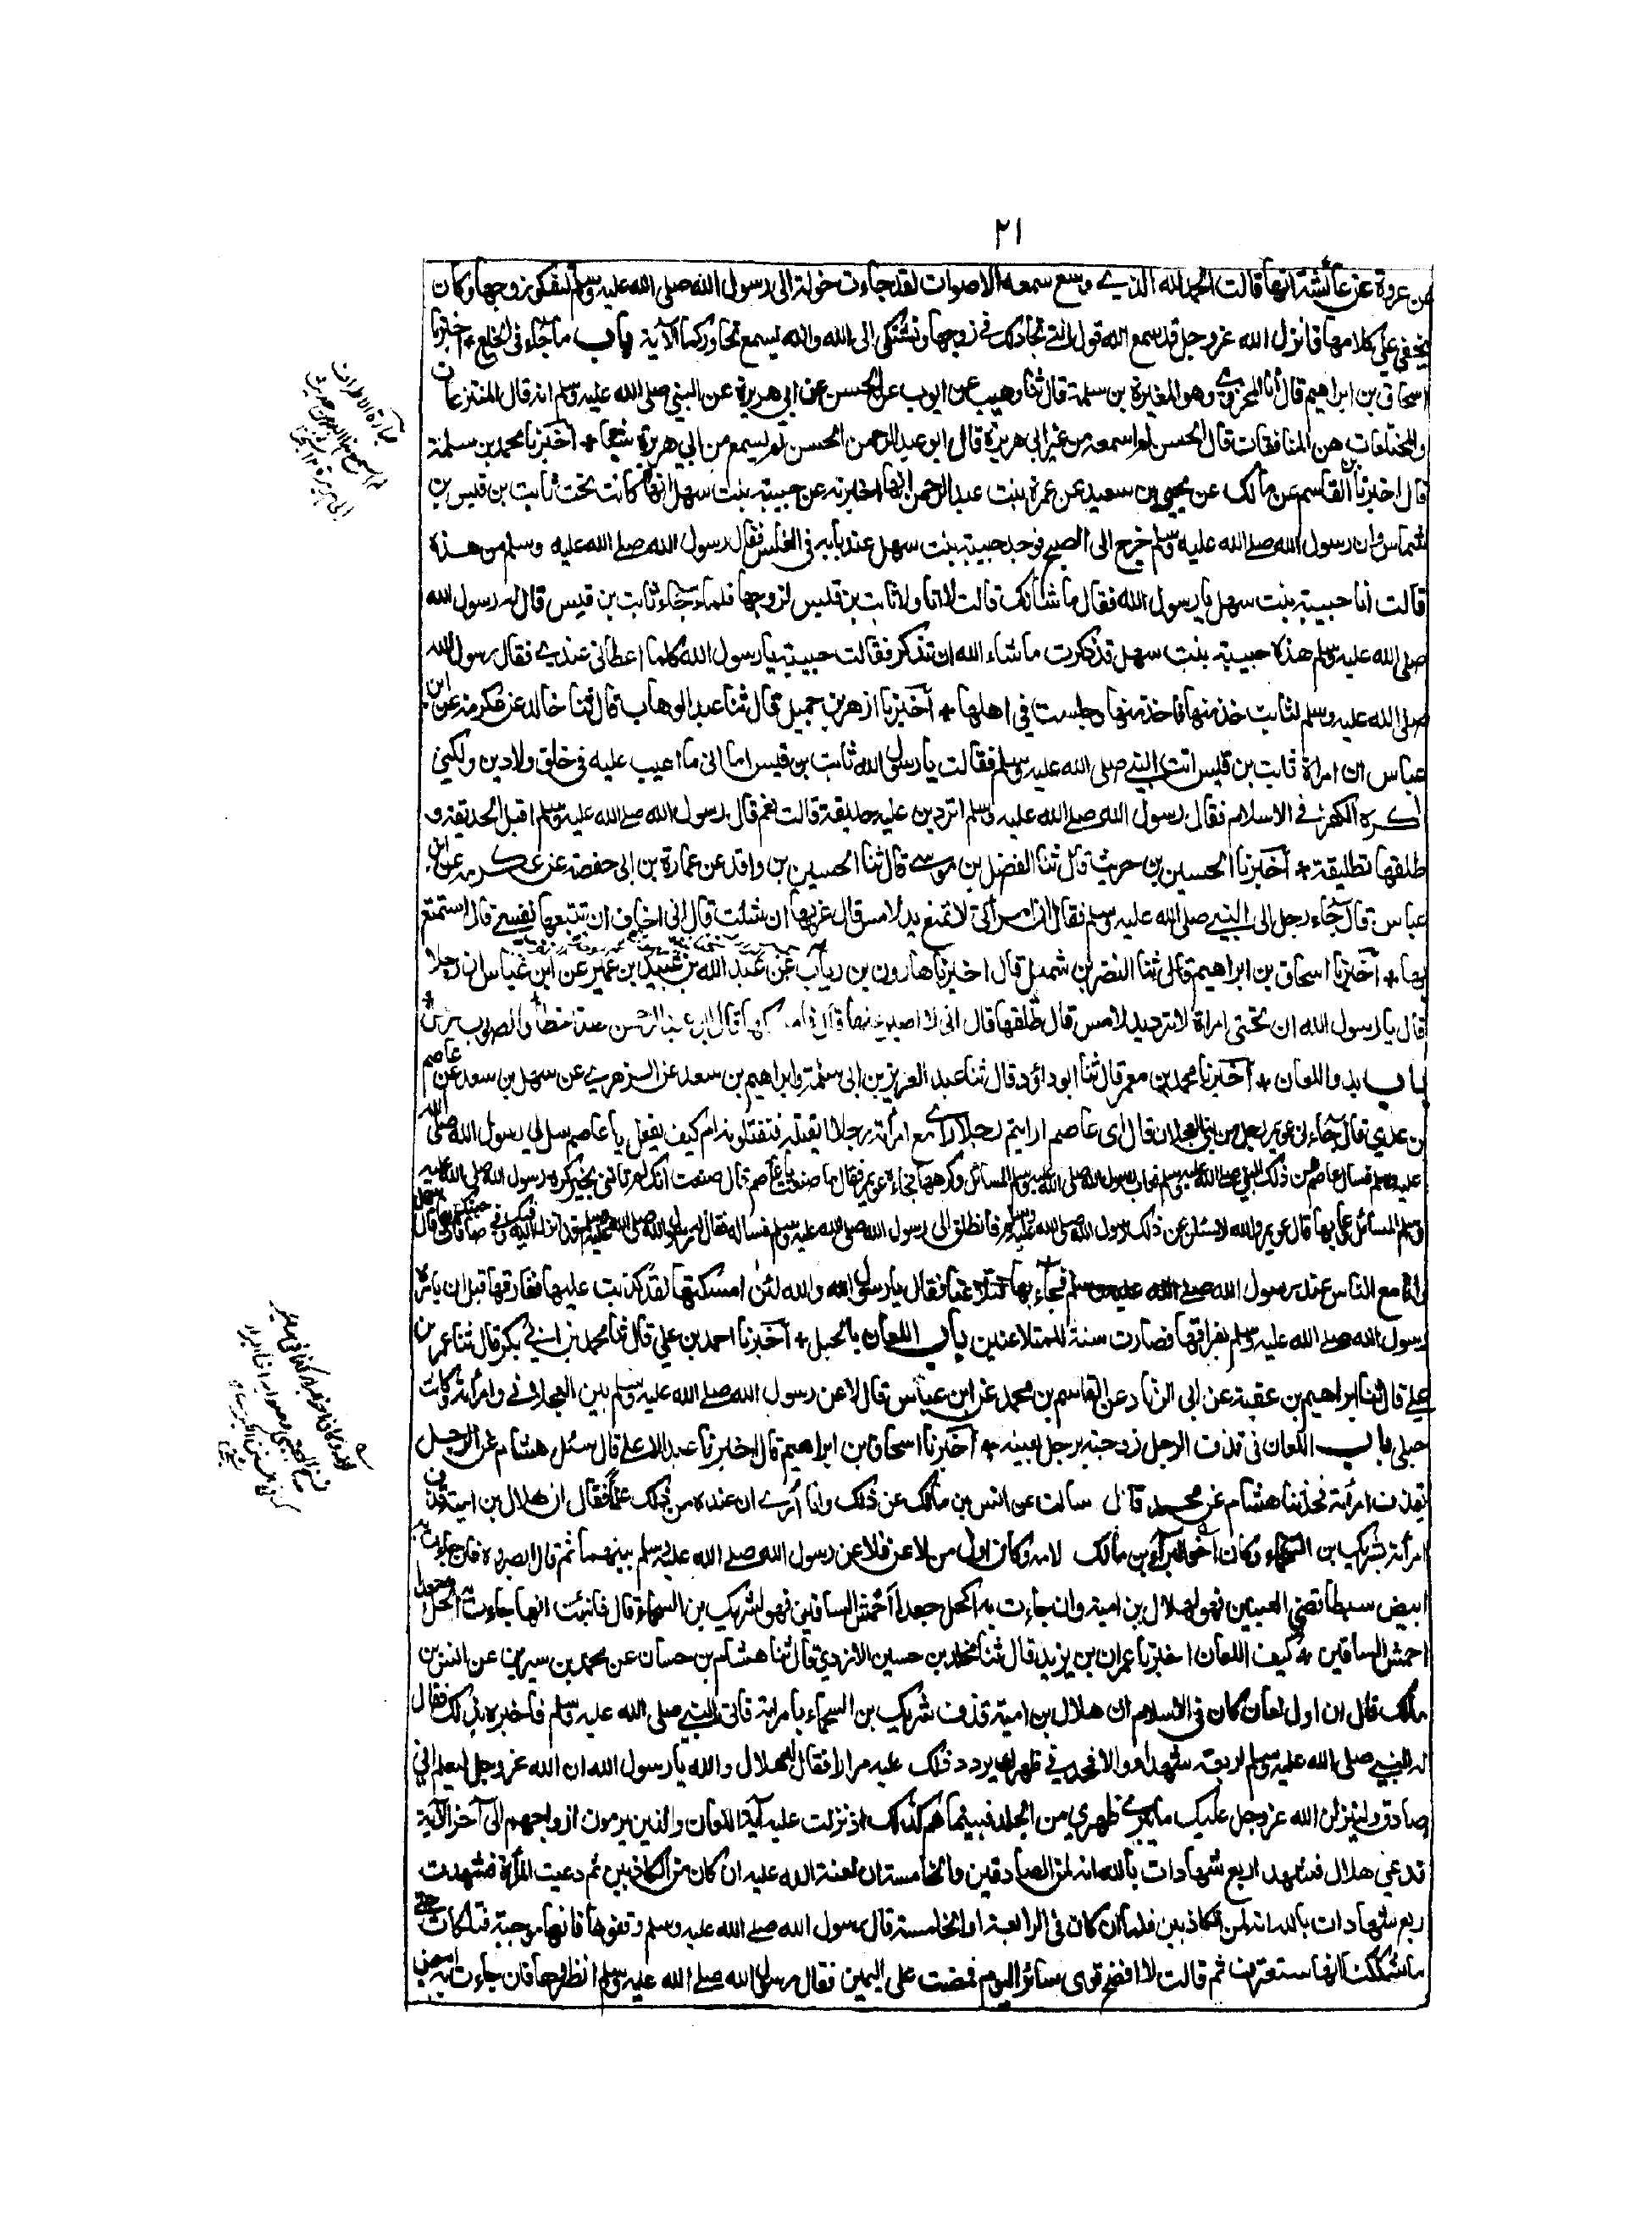 ٢١
عن عروة عن عائشة انها قالت الحمد لله الذي وسع سمعه الاصوات لقد جاءت خولة الى رسول الله صلى الله عليه وسلم تشكو زوجها وكان
يخفى علي كلامها فانزل الله عز وجل قد سمع الله قول التي تجادلك في زوجها وتشتكي الى الله والله يسمع تحاوركما الآية باب ما جاء في الخلع + اخبرنا
اسحاق بن ابراهيم قال أنا المخزومي وهو المغيرة بن سلمة قال ثنا وهيب عن ايوب عن الحسن عن ابي هريرة عن النبي صلى الله عليه وسلم انه قال المنتزعات
والمختلعات هن المنافقات قال الحسن لم اسمعه من غير ابي هريرة قال ابو عبد الرحمن الحسن لم يسمع من ابي هريرة شيئا + أخبرنا محمد بن سلمة
قال اخبرنا ابن القاسم عن مالك عن يحيى بن سعيد عن عمرة بنت عبد الرحمن انها اخبرته عن حبيبة بنت سهل انها كانت تحت ثابت بن قيس بن
شماس وان رسول الله صلى الله عليه وسلم خرج الى الصبح فوجد حبيبة بنت سهل عند بابه في الغلس فقال رسول الله صلى الله عليه وسلم من هذه
قالت أنا حبيبة بنت سهل يا رسول الله فقال ما شانك قالت لا انا ولا ثابت بن قيس لزوجها فلما جاء ثابت بن قيس قال له رسول الله
صلى الله عليه وسلم هذه حبيبة بنت سهل قد ذكرت ما شاء الله ان تذكر فقالت حبيبة يا رسول الله كلما اعطاني عندي فقال رسول الله
صلى الله عليه وسلم لثابت خذ منها فاخذ منها وجلست في اهلها + أخبرنا ازهر بن جميل قال ثنا عبد الوهاب قال ثنا خالد عن عكرمة عن ابن
عباس ان امراة ثابت بن قيس اتت النبي صلى الله عليه وسلم فقالت يا رسول الله ثابت بن قيس اما اني ما اعيب عليه في خلق ولا دين ولكني
اكره الكفر في الاسلام فقال رسول الله صلى الله عليه وسلم اتردين عليه حديقته قالت نعم قال رسول الله صلى الله عليه وسلم اقبل الحديقة و
طلقها تطليقة + أخبرنا الحسين بن حريث قال ثنا الفضل بن موسى قال ثنا الحسين بن واقد عن عمارة بن ابي حفصة عن عكرمة عن ابن
عباس قال جاء رجل الى النبي صلى الله عليه وسلم فقال ان امرأتي لا تمنع يد لامس قال غربها ان شئت قال اني اخاف ان تتبعها نفسي قال استمتع
بها + أخبرنا اسحاق بن ابراهيم قال ثنا النضر بن شميل قال اخبرنا هارون بن رياب عن عبد الله بن عبيد بن عمير عن ابن عباس ان رجلا
قال يا رسول الله ان تحتي امراة لا ترد يد لامس قال طلقها قال اني لا اصبر عنها قال فامسكها قال ابو عبد الرحمن هذا خطأ والصواب مرسل
باب بدو اللعان + أخبرنا محمد بن معمر قال ثنا ابو داؤد قال ثنا عبد العزيز بن ابي سلمة وابراهيم بن سعد عن الزهري عن سهل بن سعد عن عاصم
بن عدي قال جاءني عويمر رجل من بني العجلان قال اى عاصم ارايتم رجلا رأى مع امرأته رجلا ايقتله فتقتلونه ام كيف يفعل يا عاصم سل لي رسول الله صلى الله
عليه وسلم فسال عاصم عن ذلك النبي صلى الله عليه وسلم فعاب رسول الله صلى الله عليه وسلم المسائل وكرهها فجاءه عويمر فقال ما صنعت يا عاصم قال صنعت انك لم تاتني بخير كره رسول الله صلى الله عليه
وسلم المسائل وعابها قال عويمر والله لاسئلن عن ذلك رسول الله صلى الله عليه وسلم فانطلق الى رسول الله صلى الله عليه وسلم فساله فقال له رسول الله صلى الله عليه وسلم قد انزل الله فيك وفي صاحبتك فات بها قال سهل
وانا مع الناس عند رسول الله صلى الله عليه وسلم فجاء بها فتلاعنا فقال يا رسول الله والله لئن امسكتها لقد كذبت عليها ففارقها قبل ان يامره
رسول الله صلى الله عليه وسلم بفراقها فصارت سنة للمتلاعنين باب اللعان بالحبل + أخبرنا احمد بن علي قال ثنا محمد بن ابي بكر قال ثنا عمر بن
علي قال ثنا ابراهيم بن عقبة عن ابي الزناد عن القاسم بن محمد عن ابن عباس قال لاعن رسول الله صلى الله عليه وسلم بين العجلاني وامرأته وكانت
حبلى باب اللعان في قذف الرجل زوجته برجل بعينه + أخبرنا اسحاق بن ابراهيم قال اخبرنا عبد الاعلى قال سئل هشام عن الرجل
يقذف امرأته فحدثنا هشام عن محمد قال سالت عن انس بن مالك عن ذلك وانا أرى ان عنده من ذلك علما فقال ان هلال بن امية قذف
امرأته بشريك بن السحماء وكان اخو البراء بن مالك لامه وكان اول من لاعن فلاعن رسول الله صلى الله عليه وسلم بينهما ثم قال ابصروه فان جاءت به
ابيض سبطا قضي العينين فهو لهلال بن امية وان جاءت به اكحل جعدا أحمش الساقين فهو لشريك بن السحماء قال فانبئت انها جاءت به اكحل جعدا
احمش الساقين + كيف اللعان اخبرنا عمران بن يزيد قال ثنا مخلد بن حسين الازدي قال ثنا هشام بن حسان عن محمد بن سيرين عن انس بن
مالك قال ان اول لعان كان في الاسلام ان هلال بن امية قذف شريك بن السحماء بامراته فاتى النبي صلى الله عليه وسلم فاخبره بذلك فقال
له النبي صلى الله عليه وسلم اربعة شهداء والا فحد في ظهرك يردد ذلك عليه مرارا فقال له هلال والله يا رسول الله ان الله عز وجل ليعلم اني
صادق ولينزلن الله عز وجل عليك ما يبرئ ظهري من الجلد فبينما هم كذلك اذ نزلت عليه آية اللعان والذين يرمون ازواجهم الى آخر الآية
فدعي هلال فشهد اربع شهادات بالله انه لمن الصادقين والخامسة ان لعنة الله عليه ان كان من الكاذبين ثم دعيت المرأة فشهدت
اربع شهادات بالله انه لمن الكاذبين فلما ان كان في الرابعة او الخامسة قال رسول الله صلى الله عليه وسلم وقفوها فانها موجبة فتلكات حتى
ما شككنا انها ستعترف ثم قالت لا افضح قومي سائر اليوم فمضت على اليمين فقال رسول الله صلى الله عليه وسلم انظروها فان جاءت به ابيض